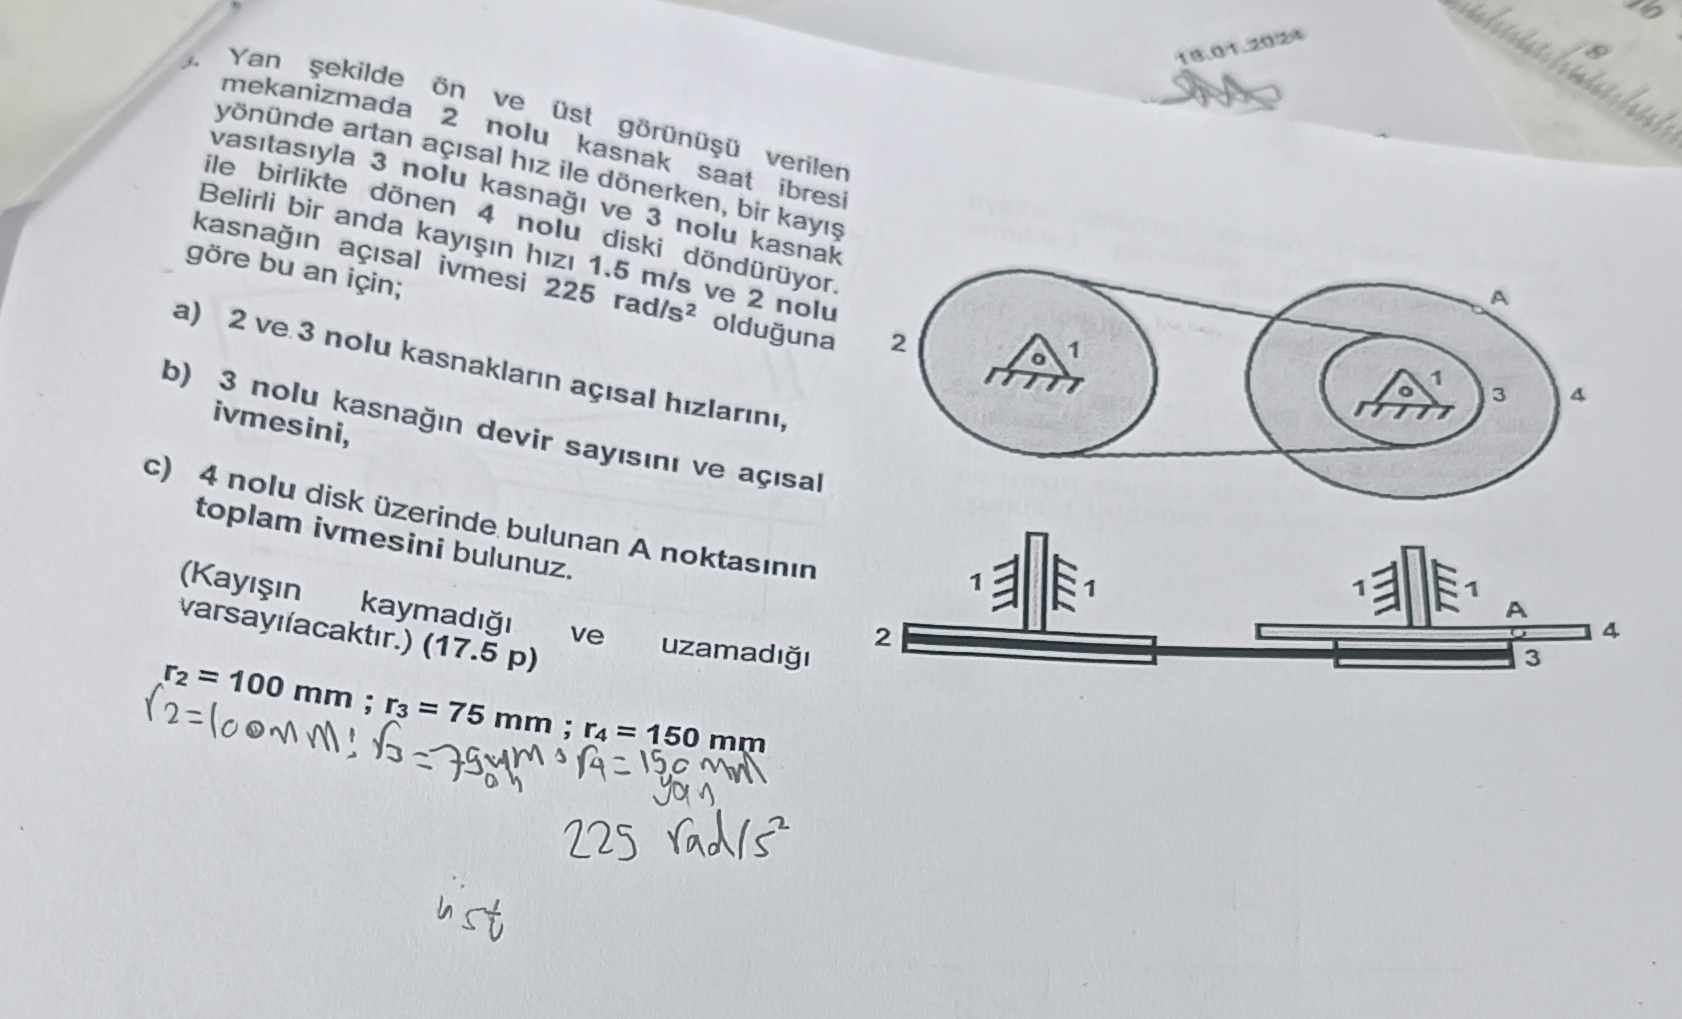 18.01.2024
16
8
3. Yan şekilde ön ve üst görünüşü verilen
mekanizmada 2 nolu kasnak saat ibresi
yönünde artan açısal hız ile dönerken, bir kayış
vasıtasıyla 3 nolu kasnağı ve 3 nolu kasnak
ile birlikte dönen 4 nolu diski döndürüyor.
Belirli bir anda kayışın hızı 1.5 m/s ve 2 nolu
kasnağın açısal ivmesi 225 rad/s² olduğuna
göre bu an için;
a) 2 ve 3 nolu kasnakların açısal hızlarını,
b) 3 nolu kasnağın devir sayısını ve açısal
ivmesini,
c) 4 nolu disk üzerinde bulunan A noktasının
toplam ivmesini bulunuz.
(Kayışın kaymadığı ve uzamadığı
varsayılacaktır.) (17.5 p)
r₂ = 100 mm ; r₃ = 75 mm ; r₄ = 150 mm
r2=100mm; r3=75mm; r4=150 mm
ön
yan
225 rad/s²
üst
A
2
1
1
3
4
1
1
1
1
A
2
4
3